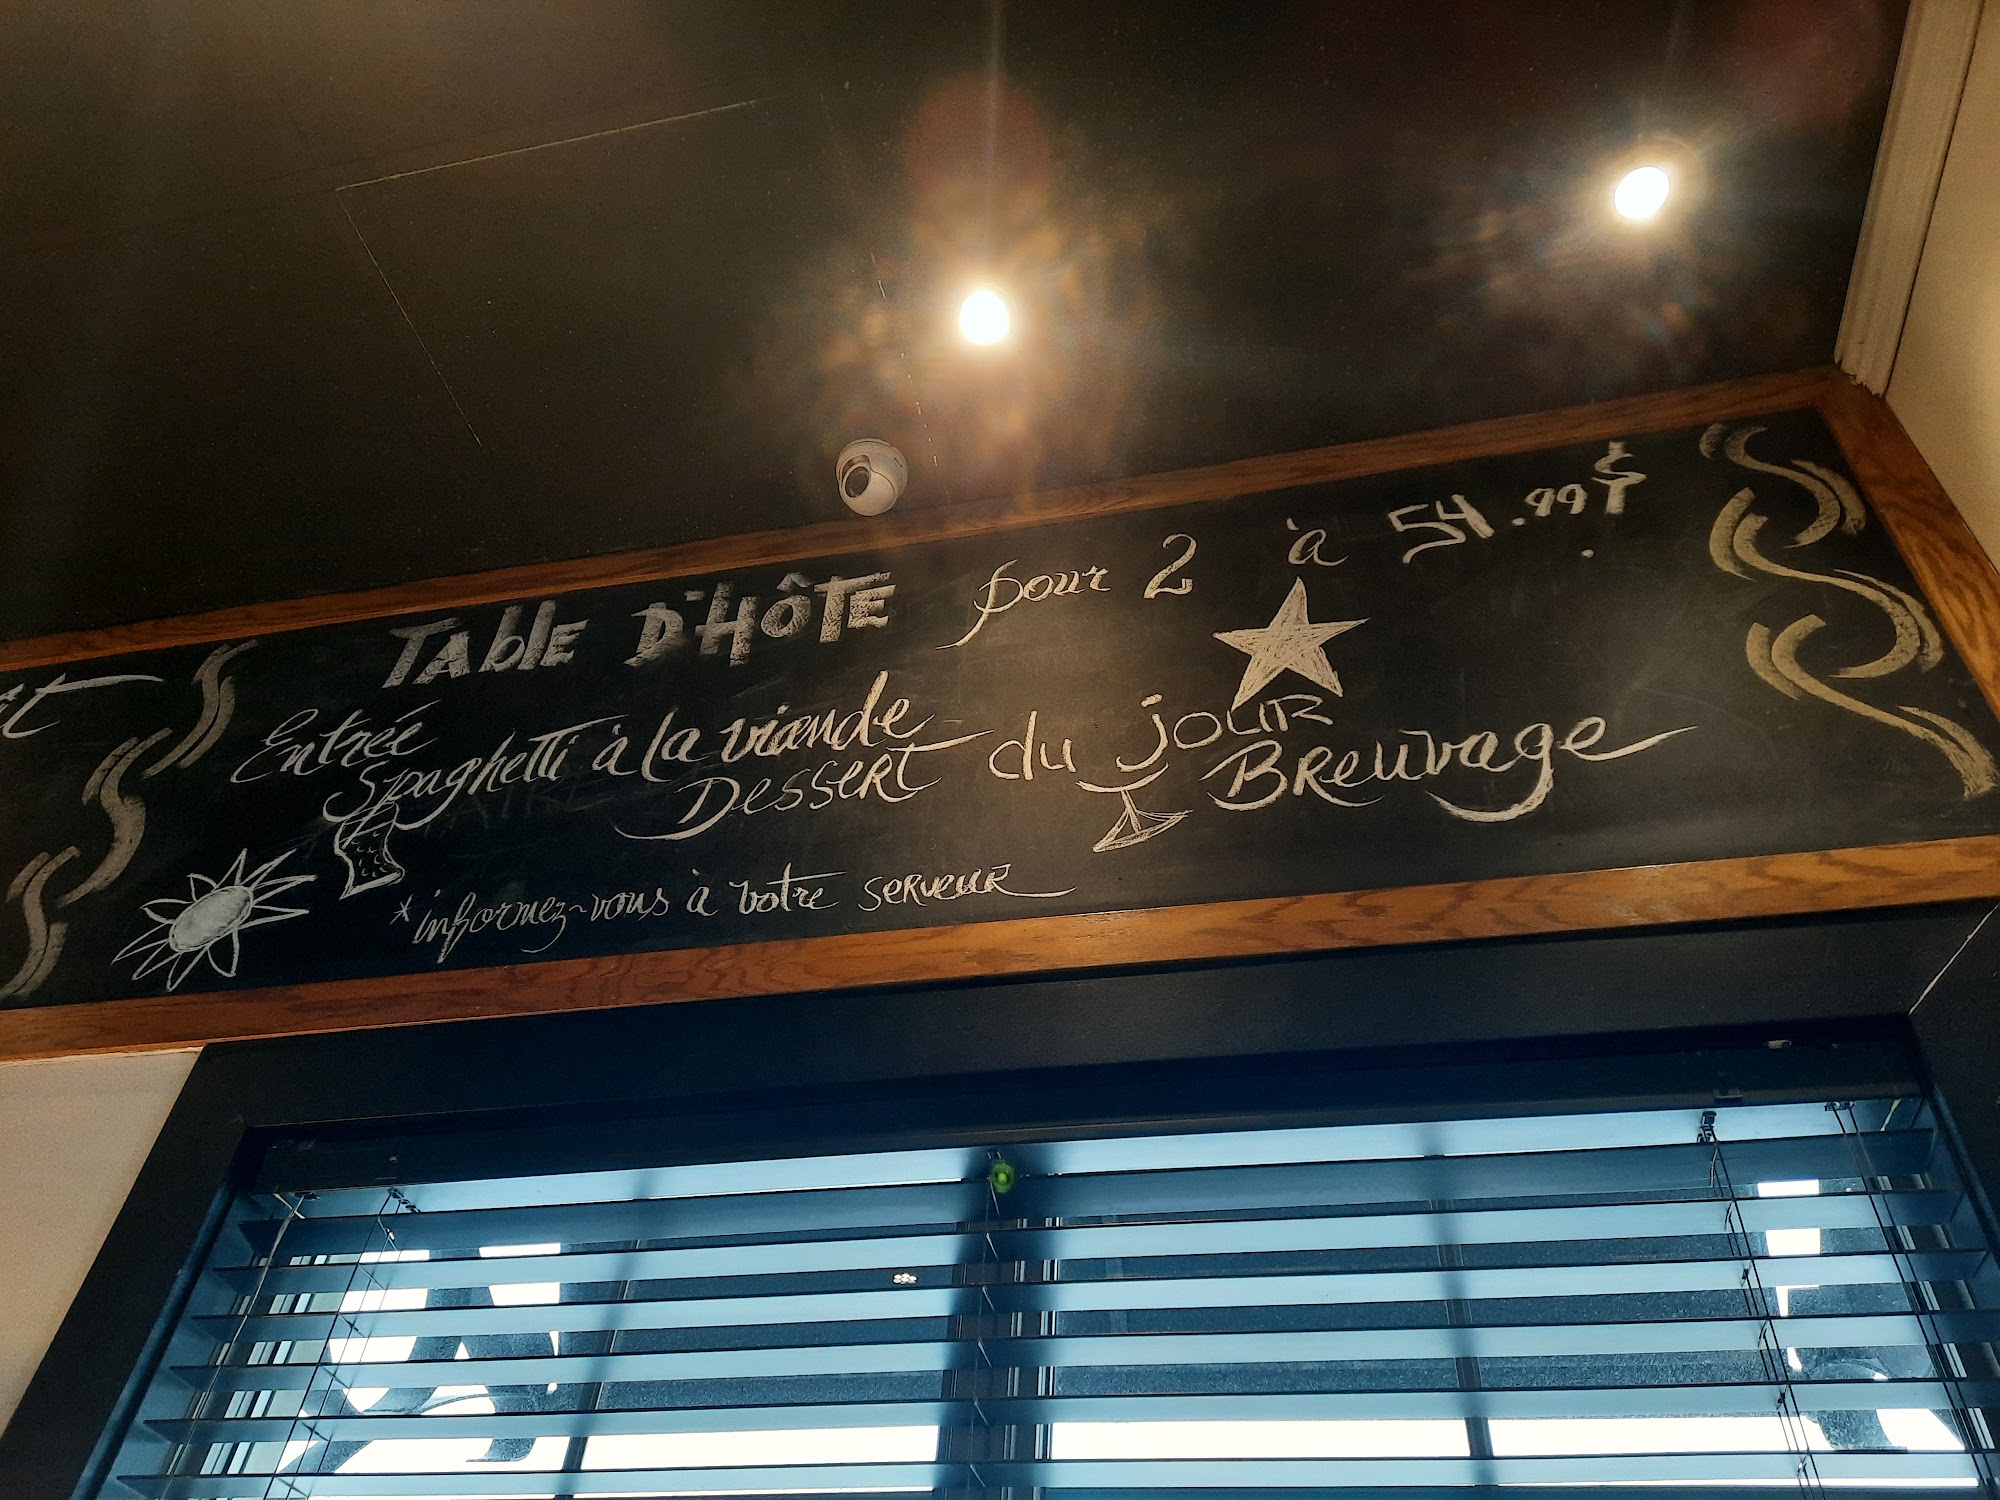 Table d'Hôte pour 2 à 54.99$
Entrée
Spaghetti à la viande
Dessert du jour
Breuvage
*informez-vous à votre serveur